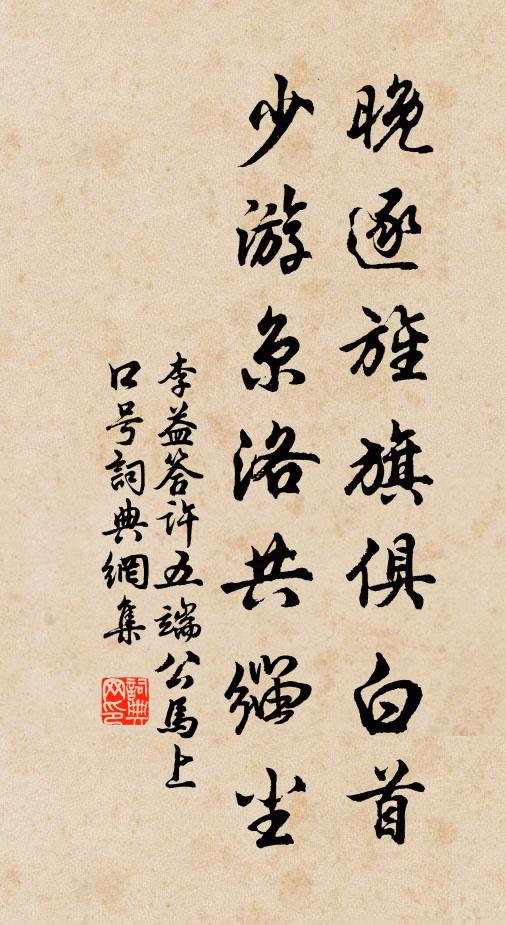 晚逐旌旗俱白首
少游京洛共缁尘
李益答许五端公馬上
口号詞典網集
詞典
网印